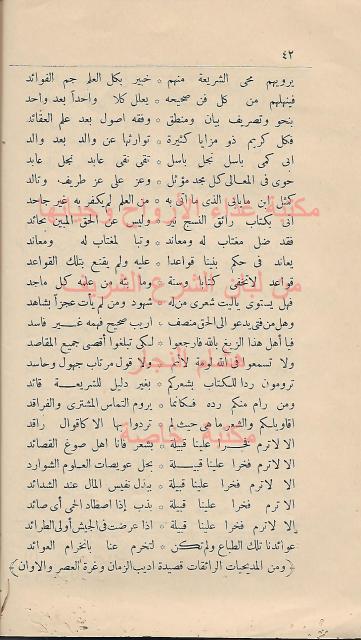 ٤٢
يرويهم محي الشريعة منهم * خبير بكل العلم جم الفوائد
فينهلهم من كل فن صحيحه * يعلل كلا واحداً بعد واحد
بنحو وتصريف بيان ومنطق * وفقه اصول بعد علم العقائد
فكل كريم ذو مزايا كثيرة * توارثها عن والد بعد والد
ابى كمى باسل نجل باسل * تقى نقى عابد نجل عابد
حوى فى المعالى كل مجد مؤثل * وعز على عز طريف وتالد
كمثل ابن مايابى الذى ما اتى به * من العلم لم يكفر به غير جاحد
اتى بكتاب رائق النسج نير * وليس عن الحق المبين بحائد
فقد ضل مغتاب له ومعاند * وتبا لمغتاب له ومعاند
يعاند فى حكم بنينا قواعدا * عليه ولم يقنع بتلك القواعد
قواعد لاتخفى كتابا وسنة * وما بثه من علمه كل ماجد
فهل يستوى ياليت شعرى من له * شهود ومن لم يات عجزاً بشاهد
وهل من فتى يدعو الى الحق منصف * اريب صحيح فهمه غير فاسد
فيا أهل هذا الزيغ بالله فارجعوا * لكى تبلغوا أقصى جميع المقاصد
ولا تسمعوا فى الله لومة لائم * ولا قول مرتاب جهول وحاسد
ترومون ردا للكتاب بشعركم * بغير دليل للشريعة قائد
ومن رام منكم رده فكانما * يروم التماس المشترى والفراقد
اقاويلكم والشعر ما هى حيث لم * تردوا بها الا كاقوال راقد
الا لاترم فخرا علينا قبيلة * بشعر فانا اهل صوغ القصائد
الا لاترم فخرا علينا قبيلة * بحل عويصات العلوم الشوارد
الا لاترم فخرا علينا قبيلة * ببذل نفيس المال عند الشدائد
الا لاترم فخرا علينا قبيلة * بذب إذا اصطاد الحمى أى صائد
الا لاترم فخرا علينا قبيلة * اذا عرضت فى الجيش أولى الطرائد
عوائدنا تلك الطباع ولم تكن * لتخرم عنا بانخرام العوائد
﴿ومن المديحيات الرائقات قصيدة اديب الزمان وغرة العصر والاوان﴾
مكتبة غذاء الأرواح وحياتها
من لبان الشرع الشريف
هشام النجار
مكتبة خاصة